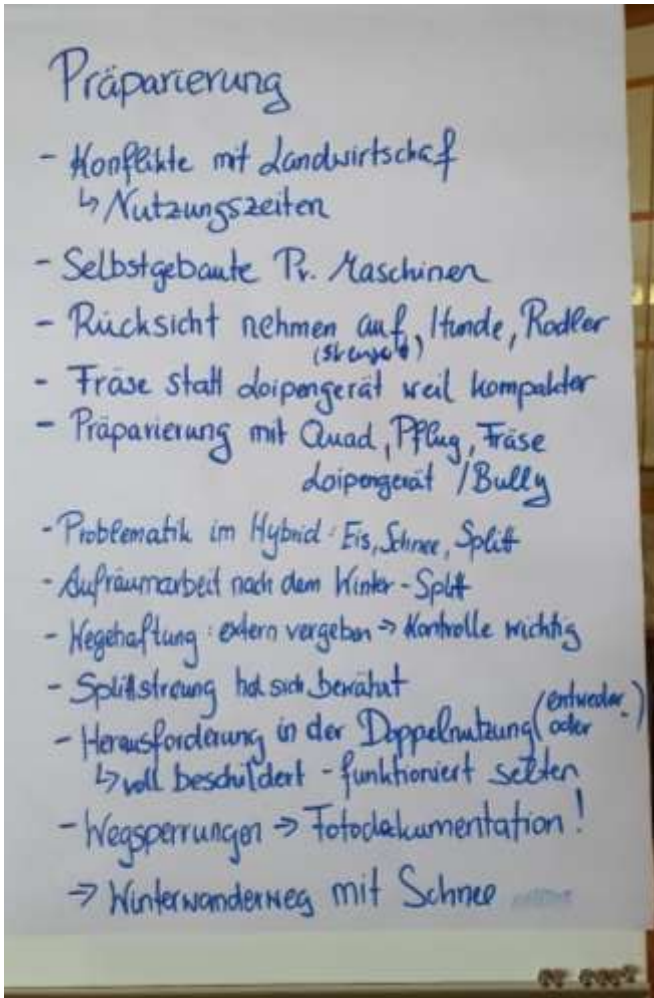 Präparierung
- Konflikte mit Landwirtschaf
↳ Nutzungszeiten
- Selbstgebaute Pr. Maschinen
- Rücksicht nehmen auf, Hunde, Rodler
- Fräse statt Loipengerät weil kompakter
- Präparierung mit Quad, Pflug, Fräse
Loipengerät / Bully
- Problematik im Hybrid: Eis, Schnee, Split
- Aufräumarbeit nach dem Winter - Split
- Wegehaftung: extern vergeben → Kontrolle wichtig
- Splittstreuung hat sich bewährt
- Herausforderung in der Doppelnutzung (entweder
oder)
↳ voll beschildert - funktioniert selten
- Wegsperrungen → Fotodokumentation!
→ Winterwanderweg mit Schnee